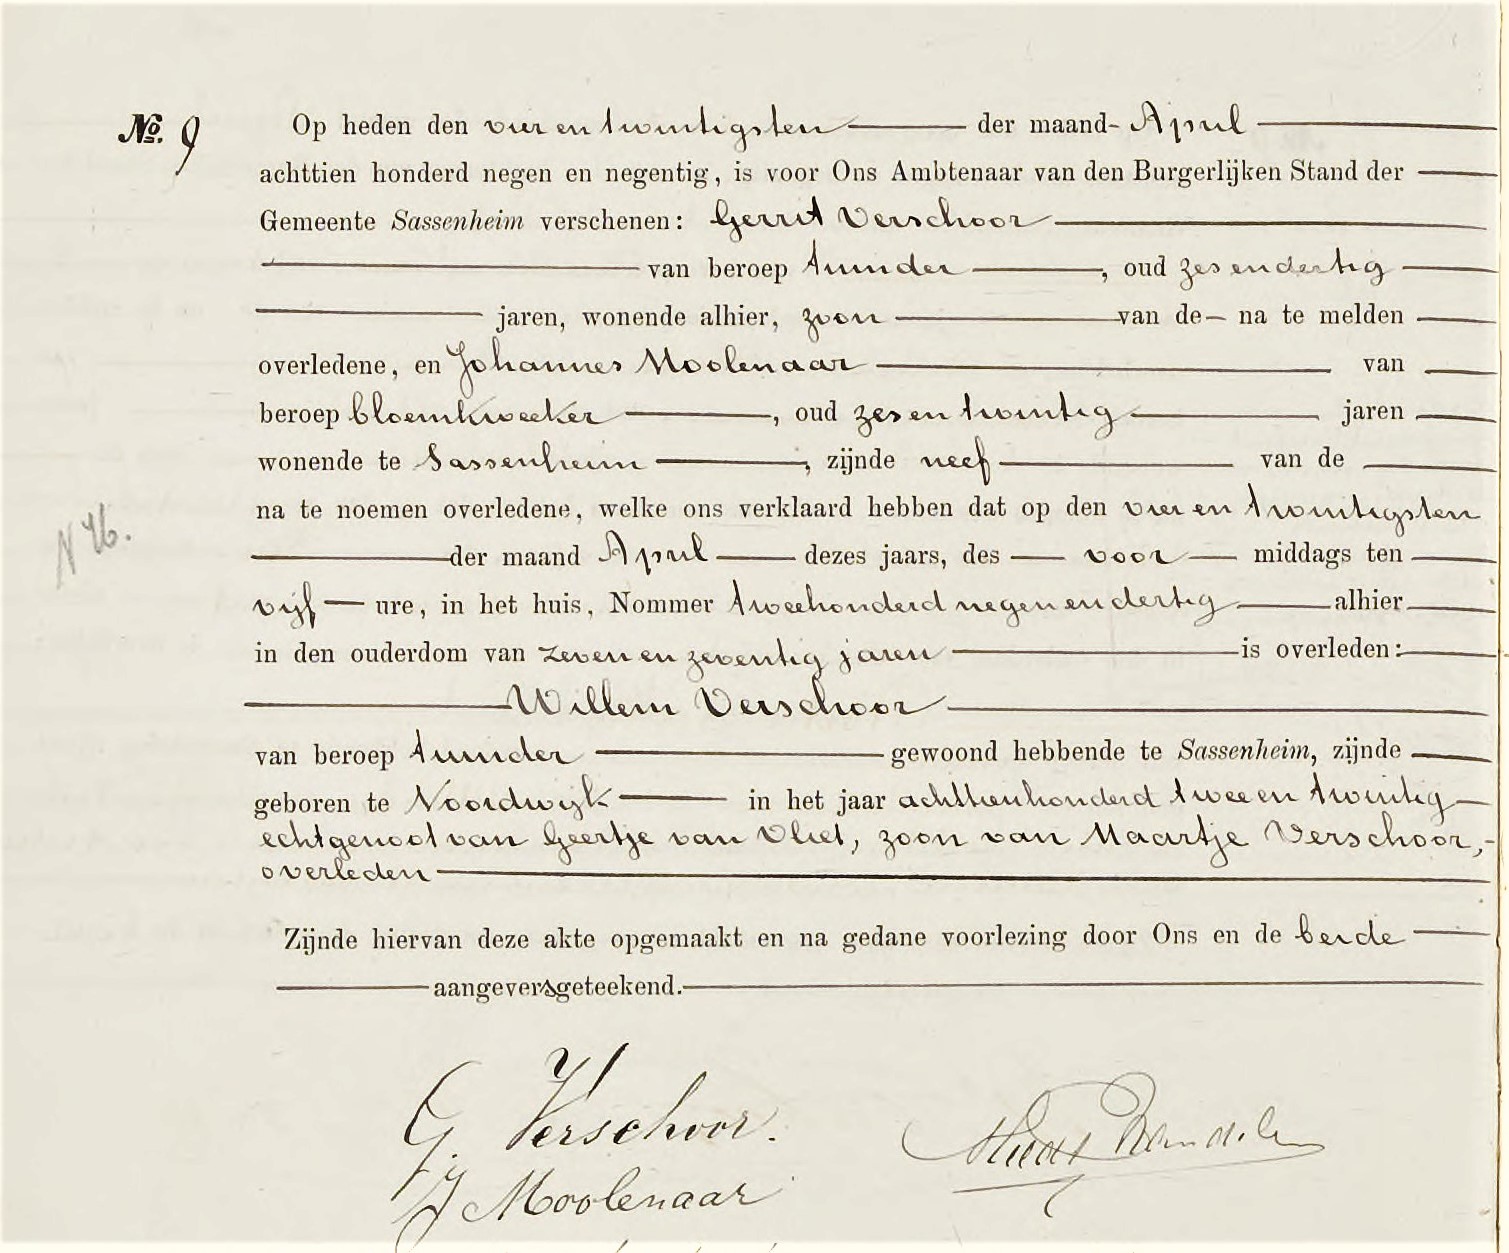 No. 9 Op heden den vier en twintigsten der maand April
achttien honderd negen en negentig, is voor Ons Ambtenaar van den Burgerlijken Stand der
Gemeente Sassenheim verschenen: Gerrit Verschoor
van beroep tuinder, oud zes en dertig
jaren, wonende alhier, zoon van de na te melden
overledene, en Johannes Moolenaar van
beroep bloemkweeker, oud zes en twintig jaren
wonende te Sassenheim, zijnde neef van de
na te noemen overledene, welke ons verklaard hebben dat op den vier en twintigsten
N 46.
der maand April dezes jaars, des voor middags ten
vijf ure, in het huis, Nommer tweehonderd negen en dertig alhier
in den ouderdom van zeven en zeventig jaren is overleden:
Willem Verschoor
van beroep tuinder gewoond hebbende te Sassenheim, zijnde
geboren te Noordwijk in het jaar achttienhonderd twee en twintig
echtgenoot van Geertje van Vliet, zoon van Maartje Verschoor,
overleden
Zijnde hiervan deze akte opgemaakt en na gedane voorlezing door Ons en de beide
aangevers geteekend.
G. Verschoor.
J Moolenaar